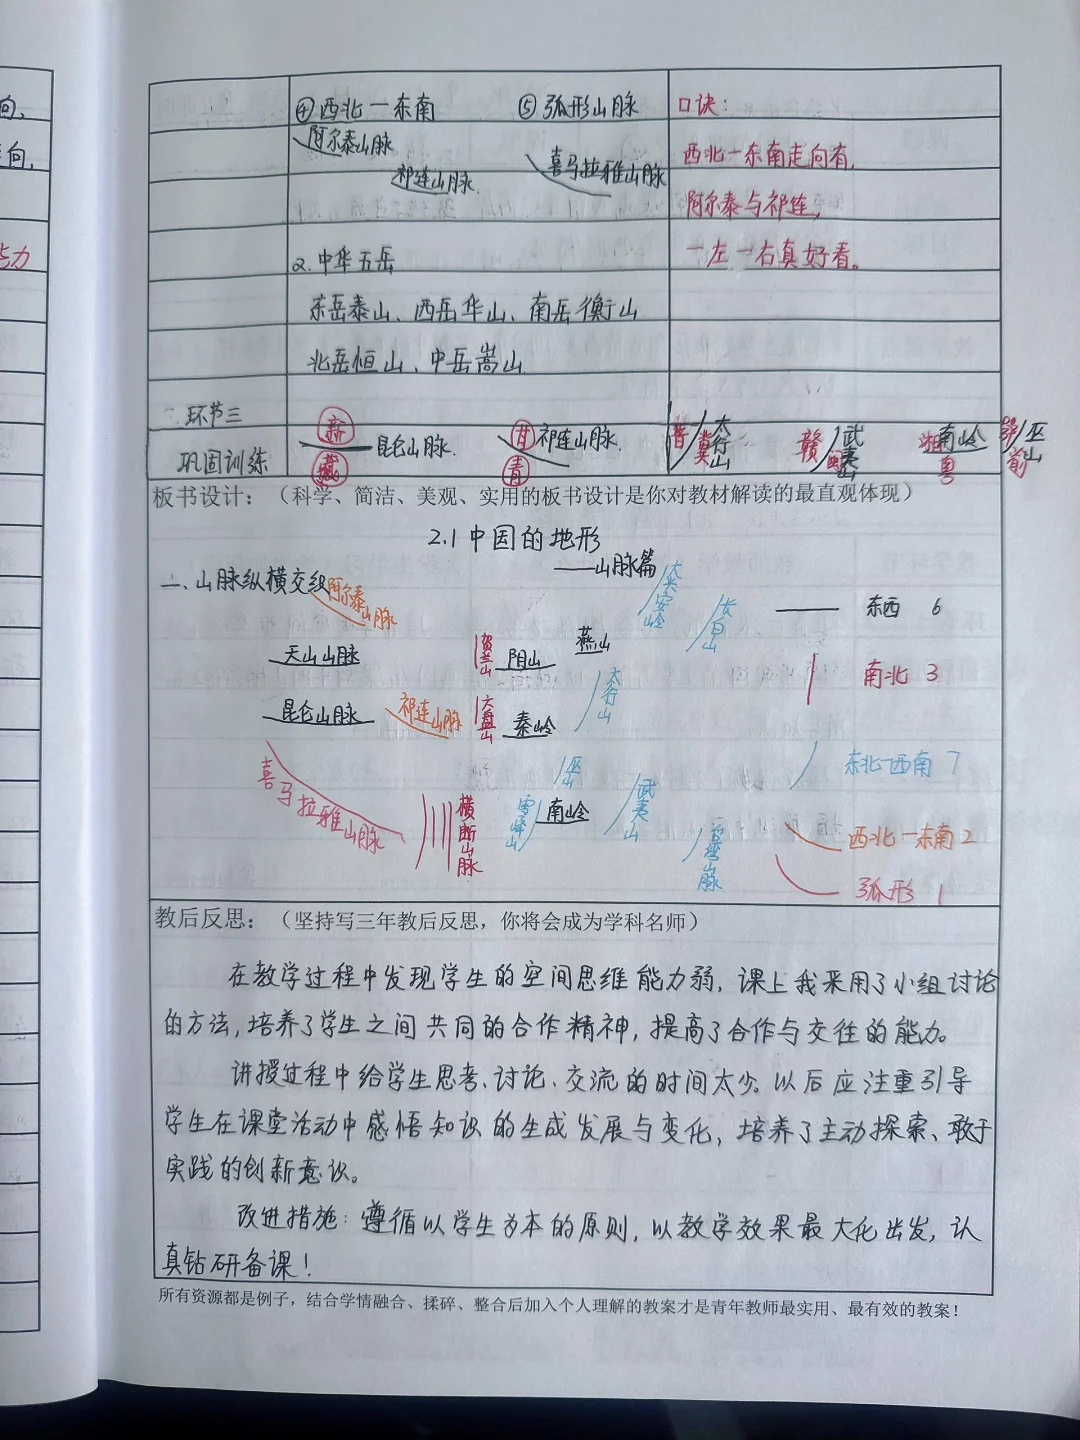 向,
向,
能力
④西北一东南 ⑤弧形山脉 口诀:
阿尔泰山脉
祁连山脉. 喜马拉雅山脉
西北一东南走向有,
阿尔泰与祁连,
一左一右真好看。
2.中华五岳
东岳泰山、西岳华山、南岳衡山
北岳恒山、中岳嵩山
环节三
巩固训练
新 昆仑山脉. 藏
甘 祁连山脉. 青
晋 冀 太行山
赣 闽 武夷山
湘 南岭 粤
鄂 巫山
板书设计:(科学、简洁、美观、实用的板书设计是你对教材解读的最直观体现)
2.1中国的地形
——山脉篇
一、山脉纵横交织
阿尔泰山脉
大兴安岭
长白山
东西 6
天山山脉 贺兰山 阴山 燕山
太行山
南北 3
昆仑山脉 祁连山脉 六盘山 秦岭
东北一西南 7
喜马拉雅山脉 横断山脉
巫山
雪峰山 南岭 武夷山
台湾山脉
西北一东南 2
弧形 1
教后反思:(坚持写三年教后反思,你将会成为学科名师)
在教学过程中发现学生的空间思维能力弱,课上我采用了小组讨论
的方法,培养了学生之间共同的合作精神,提高了合作与交往的能力。
讲授过程中给学生思考、讨论、交流的时间太少。以后应注重引导
学生在课堂活动中感悟知识的生成发展与变化,培养了主动探索、敢于
实践的创新意识。
改进措施:遵循以学生为本的原则,以教学效果最大化出发,认
真钻研备课!
所有资源都是例子,结合学情融合、揉碎、整合后加入个人理解的教案才是青年教师最实用、最有效的教案!